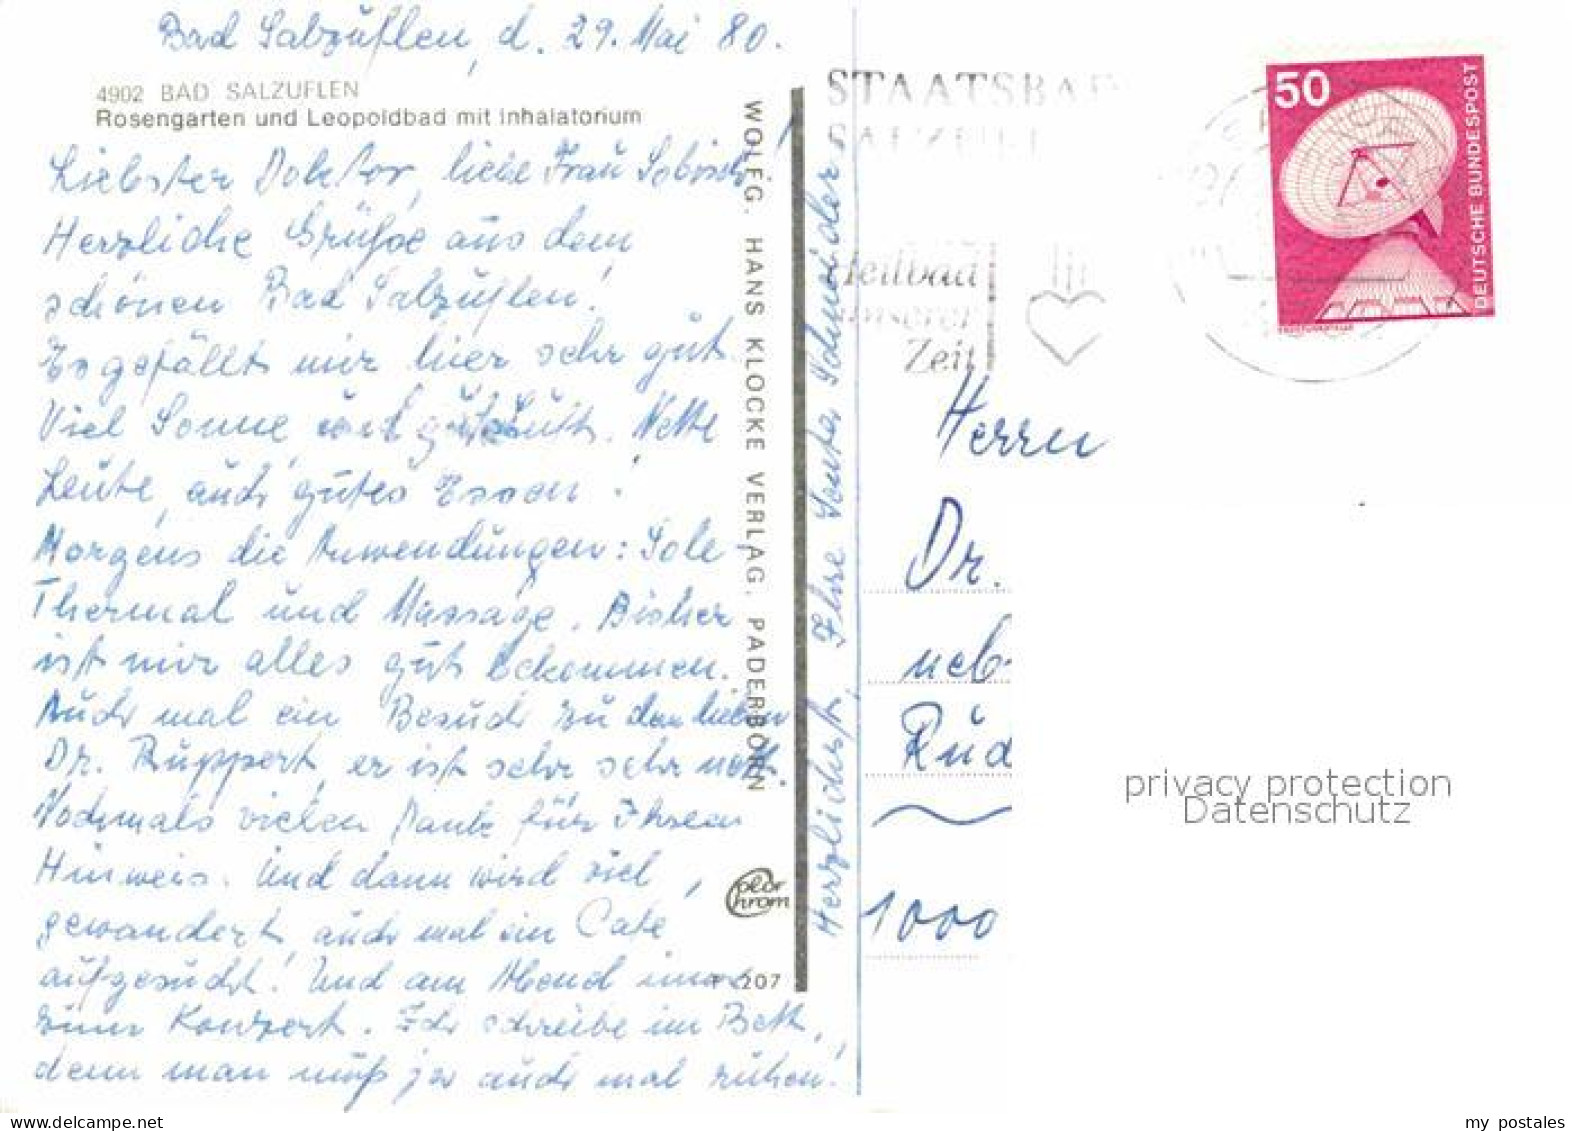 Bad Salzuflen, d. 29. Mai 80.
4902 BAD SALZUFLEN
Rosengarten und Leopoldbad mit Inhalatorium
Liebster Doktor, liebe Frau
Herzliche Grüße aus dem
schönen Bad Salzuflen!
Es gefällt mir hier sehr gut
Viel Sonne, und gute Luft. Nette
Leute, auch gutes Essen!
Morgens die Anwendungen: Sole
Thermal und Massage. Bisher
ist mir alles gut bekommen.
Auch mal ein Besuch zu den lieben
Dr. Ruppert, er ist sehr sehr nett.
Nochmals vielen Dank für Ihren
Hinweis. Und dann wird viel
gewandert, auch mal ein Cafe
aufgesucht! Und am Abend
zum Konzert. Ich schreibe im Bett,
denn man muß ja auch mal ruhen!
Herzlichst, Ihre Schneider
WOLFG. HANS KLOCKE VERLAG, PADERBORN
Color
Chrom
207
STAATSBAD
SALZUFL
Heilbad
unserer
Zeit
50
DEUTSCHE BUNDESPOST
ERDEFUNKSTELLE
Herrn
Dr.
neb
Rud
1000
privacy protection
Datenschutz
my postales